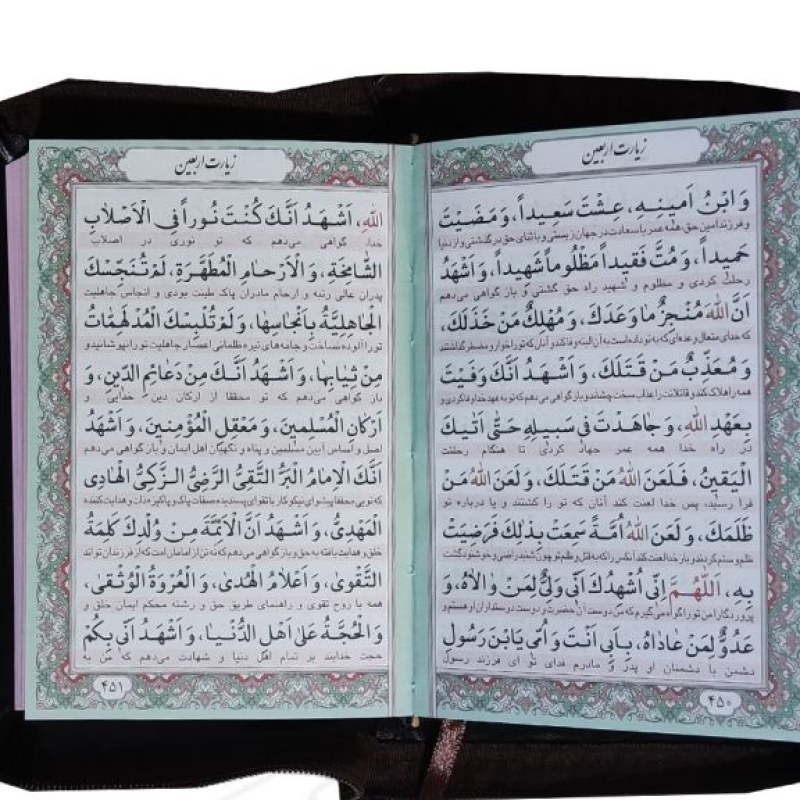 زیارت اربعین
وَ ابْنُ اَمینِهِ، عِشْتَ سَعیداً، وَ مَضَیْتَ
و فرزند امین حق، همه عمر با سعادت در جهان زیستی و با ثنای حق درگذشتی و از دنیا
حَمیداً، وَ مُتَّ فَقیداً مَظْلُوماً شَهیداً، وَ اَشْهَدُ
رحلت کردی و مظلوم و شهید راه حق گشتی و باز گواهی می‌دهم
اَنَّ اللهَ مُنْجِزٌ ما وَعَدَکَ، وَ مُهْلِکٌ مَنْ خَذَلَکَ،
که خدای متعال وعده‌ای که به تو داده است به آن البته وفا کند و آنان که تو را خوار و مضطر گذاشتند
وَ مُعَذِّبٌ مَنْ قَتَلَکَ، وَ اَشْهَدُ اَنَّکَ وَفَیْتَ
همه را هلاک کند و قاتلانت را عذاب سخت چشاند و باز گواهی می‌دهم که تو به عهد خدا وفا کردی و
بِعَهْدِ اللهِ، وَ جاهَدْتَ فی سَبیلِهِ حَتّی اَتیکَ
در راه خدا همه عمر جهاد کردی تا هنگام رحلتت
الْیَقینُ، فَلَعَنَ اللهُ مَنْ قَتَلَکَ، وَ لَعَنَ اللهُ مَنْ
فرا رسید، پس خدا لعنت کند آنان که تو را کشتند و یا درباره تو
ظَلَمَکَ، وَ لَعَنَ اللهُ اُمَّةً سَمِعَتْ بِذلِکَ فَرَضِیَتْ
ظلم و ستم کردند و باز خدا لعنت کند آنکس را که به قتل و ظلم تو چون شنید راضی و خوشنود گشت
بِهِ، اَللّهُمَّ اِنّی اُشْهِدُکَ اَنّی وَلِیٌّ لِمَنْ والاهُ، وَ
پروردگارا من تو را گواه می‌گیرم که من دوست آن حضرت و دوست دوستداران او هستم و
عَدُوٌّ لِمَنْ عاداهُ، بِاَبی اَنْتَ وَ اُمّی یَا بْنَ رَسُولِ
دشمن با دشمنان او پدر و مادرم فدای تو ای فرزند رسول
۴۵۰
زیارت اربعین
اللهِ، اَشْهَدُ اَنَّکَ کُنْتَ نُوراً فِی الْاَصْلابِ
خدا، گواهی می‌دهم که تو نوری در اصلاب
الشّامِخَةِ، وَ الْاَرْحامِ الْمُطَهَّرَةِ، لَمْ تُنَجِّسْکَ
پدران عالی رتبه و ارحام مادران پاک طینت بودی و انجاس جاهلیت
الْجاهِلِیَّةُ بِاَنْجاسِها، وَ لَمْ تُلْبِسْکَ الْمُدْلَهِمّاتُ
تو را آلوده نساخت و جامه‌های تیره ظلمانی اعصار جاهلیت تو را نپوشانید و
مِنْ ثِیابِها، وَ اَشْهَدُ اَنَّکَ مِنْ دَعائِمِ الدّینِ، وَ
باز گواهی می‌دهم که تو محققا از ارکان دین خدایی و
اَرْکانِ الْمُسْلِمینَ، وَ مَعْقِلِ الْمُؤْمِنینَ، وَ اَشْهَدُ
اصل و اساس آیین مسلمین و پناه و نگهبان اهل ایمان و باز گواهی می‌دهم
اَنَّکَ الْاِمامُ الْبَرُّ التَّقِیُّ الرَّضِیُّ الزَّکِیُّ الْهادِی
که تویی محققا پیشوای نیکوکار با تقوای پسندیده صفات پاک و پاکیزه ذات و هدایت کننده
الْمَهْدِیُّ، وَ اَشْهَدُ اَنَّ الْاَئِمَّةَ مِنْ وُلْدِکَ کَلِمَةُ
خلق و هدایت یافته به حق و باز گواهی می‌دهم که نه تن از امامان امت که از فرزندان تواند
التَّقْوی، وَ اَعْلامُ الْهُدی، وَ الْعُرْوَةُ الْوُثْقی،
همه با روح تقوی و راهنمای طریق حق و رشته محکم ایمان خلق و
وَ الْحُجَّةُ عَلی اَهْلِ الدُّنْیا، وَ اَشْهَدُ اَنّی بِکُمْ
حجت خدایند بر تمام اهل دنیا و شهادت می‌دهم که من به
۴۵۱